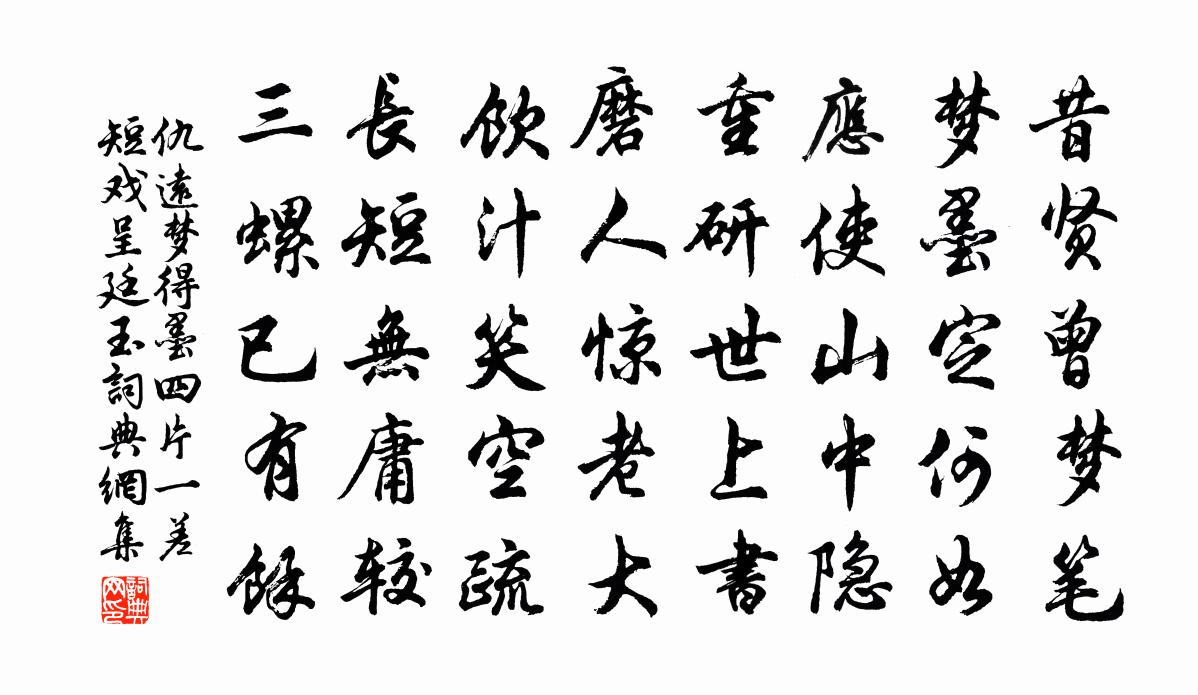 昔贤曾梦笔
梦墨定何如
應使山中隐
重研世上書
磨人惊老大
飲汁笑空疏
長短無庸较
三螺已有餘
仇遠梦得墨四片一差
短戏呈廷玉詞典網集
詞典网印